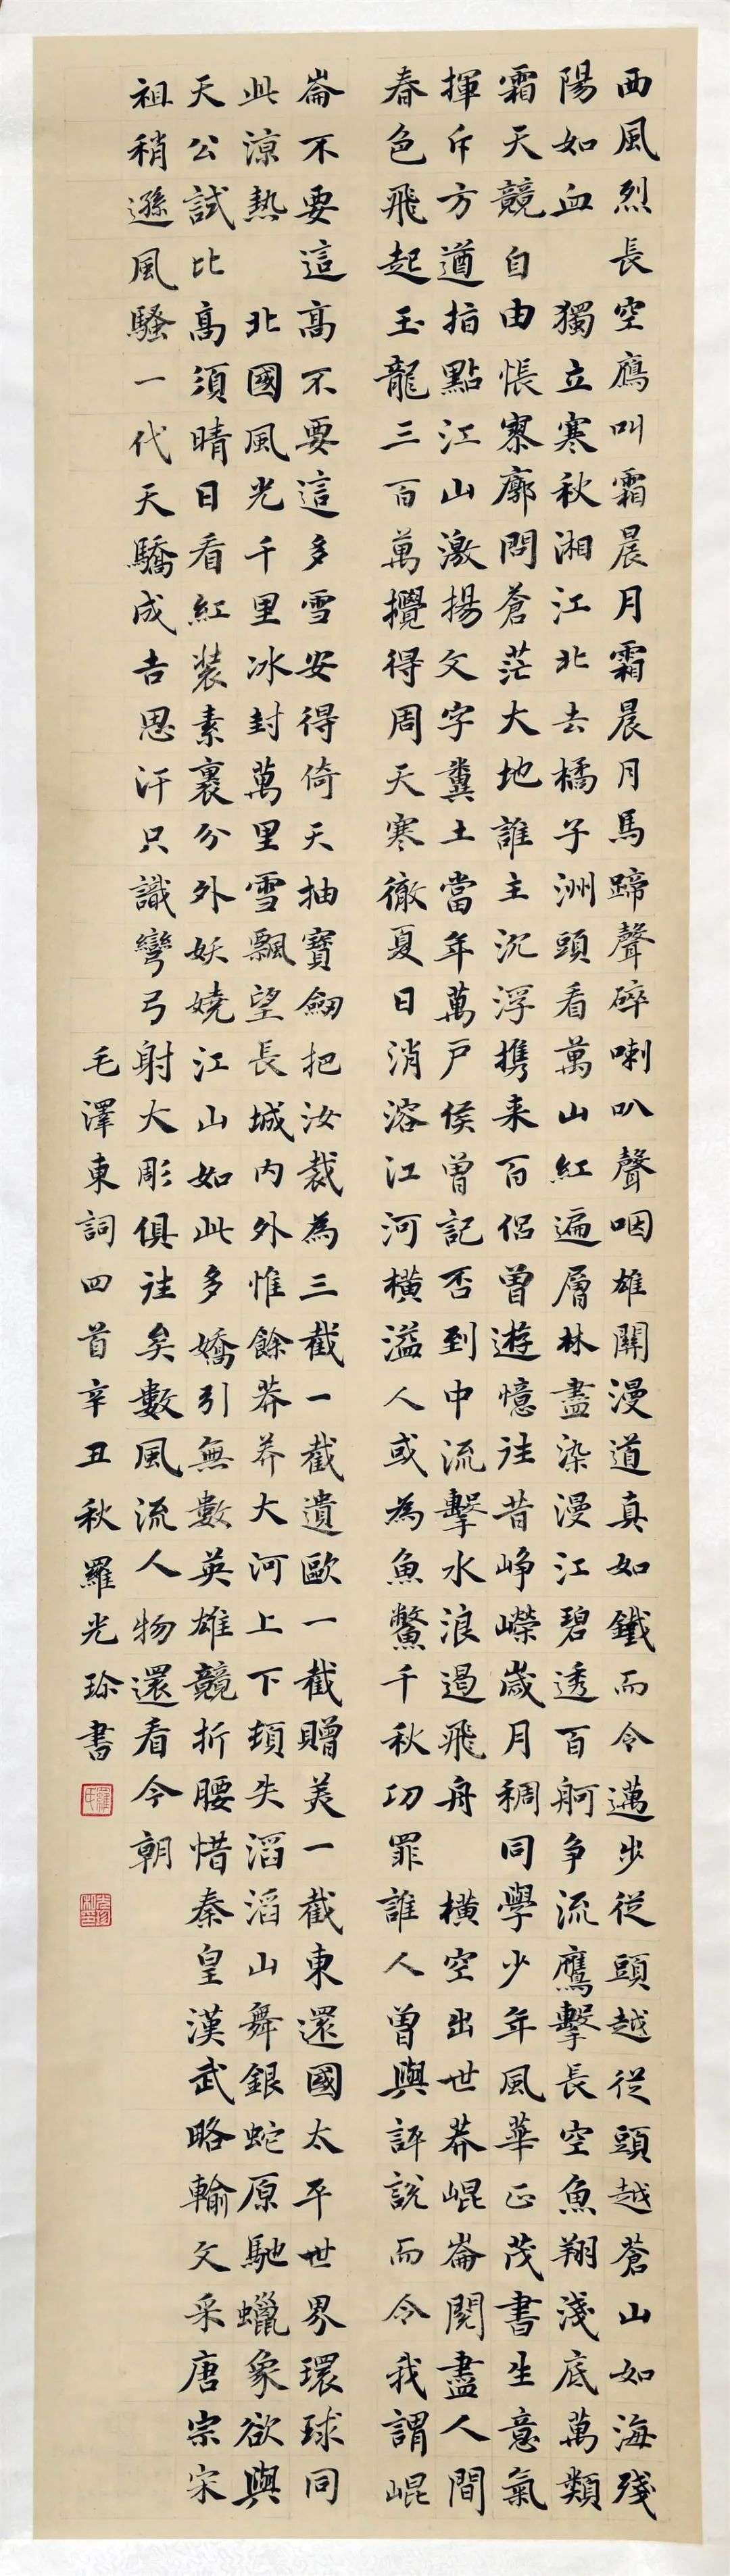 西風烈長空鴈叫霜晨月霜晨月馬蹄聲碎喇叭聲咽雄關漫道真如鐵而今邁步從頭越從頭越蒼山如海殘
陽如血 獨立寒秋湘江北去橘子洲頭看萬山紅遍層林盡染漫江碧透百舸争流鷹擊長空魚翔淺底萬類
霜天競自由悵寥廓問蒼茫大地誰主沉浮携来百侣曾遊憶往昔崢嶸歲月稠同學少年風華正茂書生意氣
揮斥方遒指點江山激揚文字糞土當年萬戶侯曾記否到中流擊水浪遏飛舟 橫空出世莽崐崙閱盡人間
春色飛起玉龍三百萬攪得周天寒徹夏日消溶江河橫溢人或為魚鱉千秋功罪誰人曾與評說而今我謂崐
崙不要這高不要這多雪安得倚天抽寶劍把汝裁為三截一截遺歐一截贈美一截東還國太平世界環球同
此涼熱 北國風光千里冰封萬里雪飄望長城内外惟餘莽莽大河上下頓失滔滔山舞銀蛇原馳蠟象欲與
天公試比高須晴日看紅裝素裹分外妖嬈江山如此多嬌引無數英雄競折腰惜秦皇漢武略輸文采唐宗宋
祖稍遜風騷一代天驕成吉思汗只識彎弓射大彫俱往矣數風流人物還看今朝
毛澤東詞四首辛丑秋羅光珍書